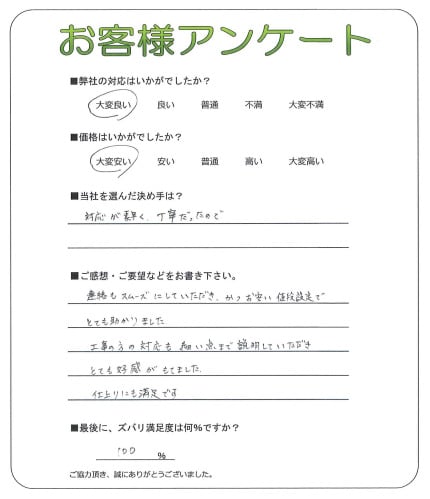 お客様アンケート
■弊社の対応はいかがでしたか？
大変良い 良い 普通 不満 大変不満
■価格はいかがでしたか？
大変安い 安い 普通 高い 大変高い
■当社を選んだ決め手は？
対応が素早く、丁寧だったので
■ご感想・ご要望などをお書き下さい。
連絡もスムーズにしていただき、かつお安い値段設定で
とても助かりました
工事の方の対応も細い点まで説明していただき
とても好感がもてました
仕上りにも満足です
■最後に、ズバリ満足度は何%ですか？
100 %
ご協力頂き、誠にありがとうございました。